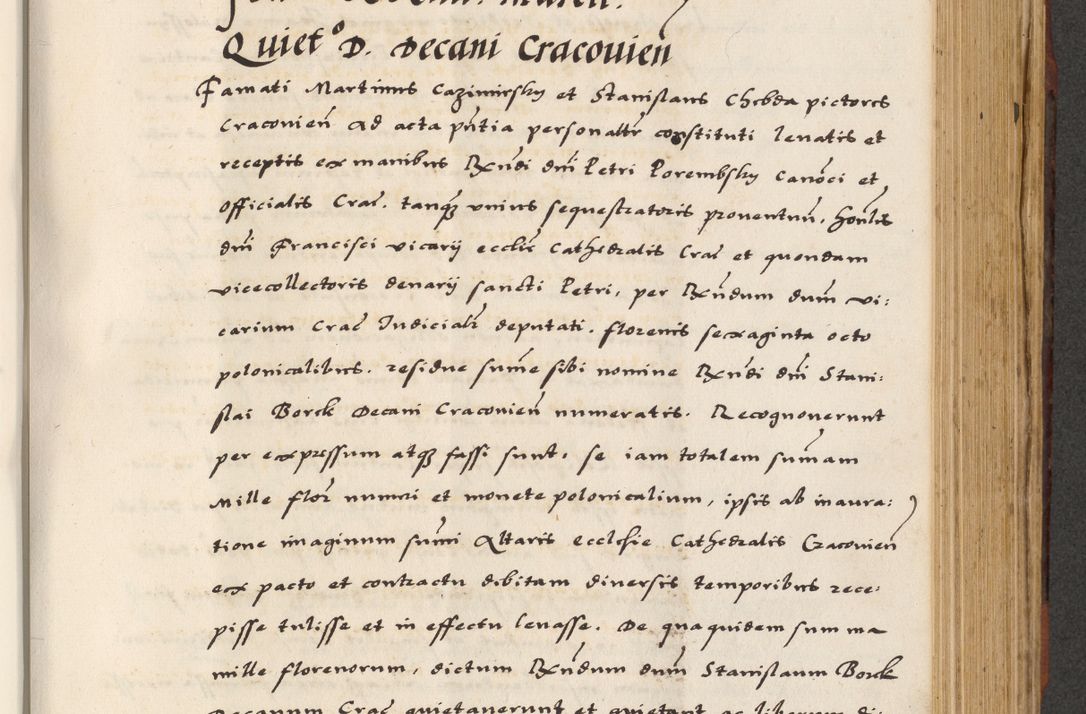 Quiet° D. Decani Cracouień
Famati Martinus Cazimirsky et Stanislaus Chebda pictores
Cracouień Ad acta pñtia personaltr constituti leuatis et
receptis ex manibus Rxñdi dñi Petri Porembsky Canóci et
officialis Crac̃. tanq̃ vnius sequestratoris prouentuũ, hoñlis
dñi Francisci vicarij ecclie Cathedralis Crac̃ et quondam
vicecollectoris denarij sancti Petri, per Rxñdum dum̃ vi:
carium Crac̃ Iudicialr deputati. florenis sexaginta octo
polonicalibus. residue sum̃e sibi nomine Rxñdi dñi Stani:
slai Borck Decani Cracouień numeratis. Recognouerunt
per expressum atq̃ fassi sunt, se iam totalem sum̃am
Mille flor̃ numeri et monete polonicalium, ipsis ab inaura:
tione imaginum sum̃i Altaris ecclesie Cathedralis Cracouień
ex pacto et contractu debitam diuersis temporibus rece:
pisse tulisse et in effectu leuasse. De qua quidem summa
mille florenorum, dictum Rxñdum dum̃ Stanislaum Borck
Decanum Crac̃ quietauerunt et quietant ac liberum di: